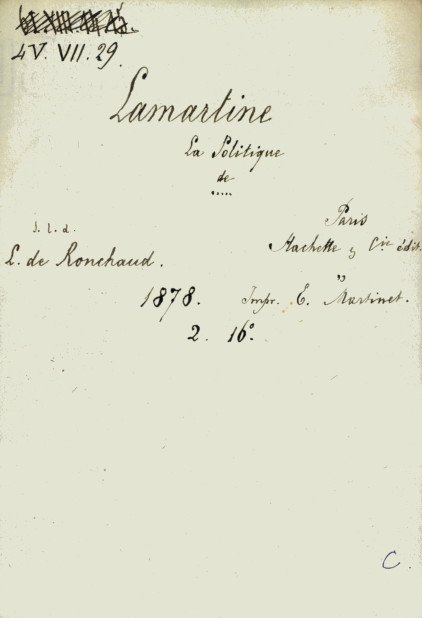 4 V. VII. 29.
Lamartine
La Politique
de
.....
S. l. d.
L. de Ronchaud.
Paris
Hachette & Cie édit.
1878. Impr. E. Martinet.
2. 16º.
C.